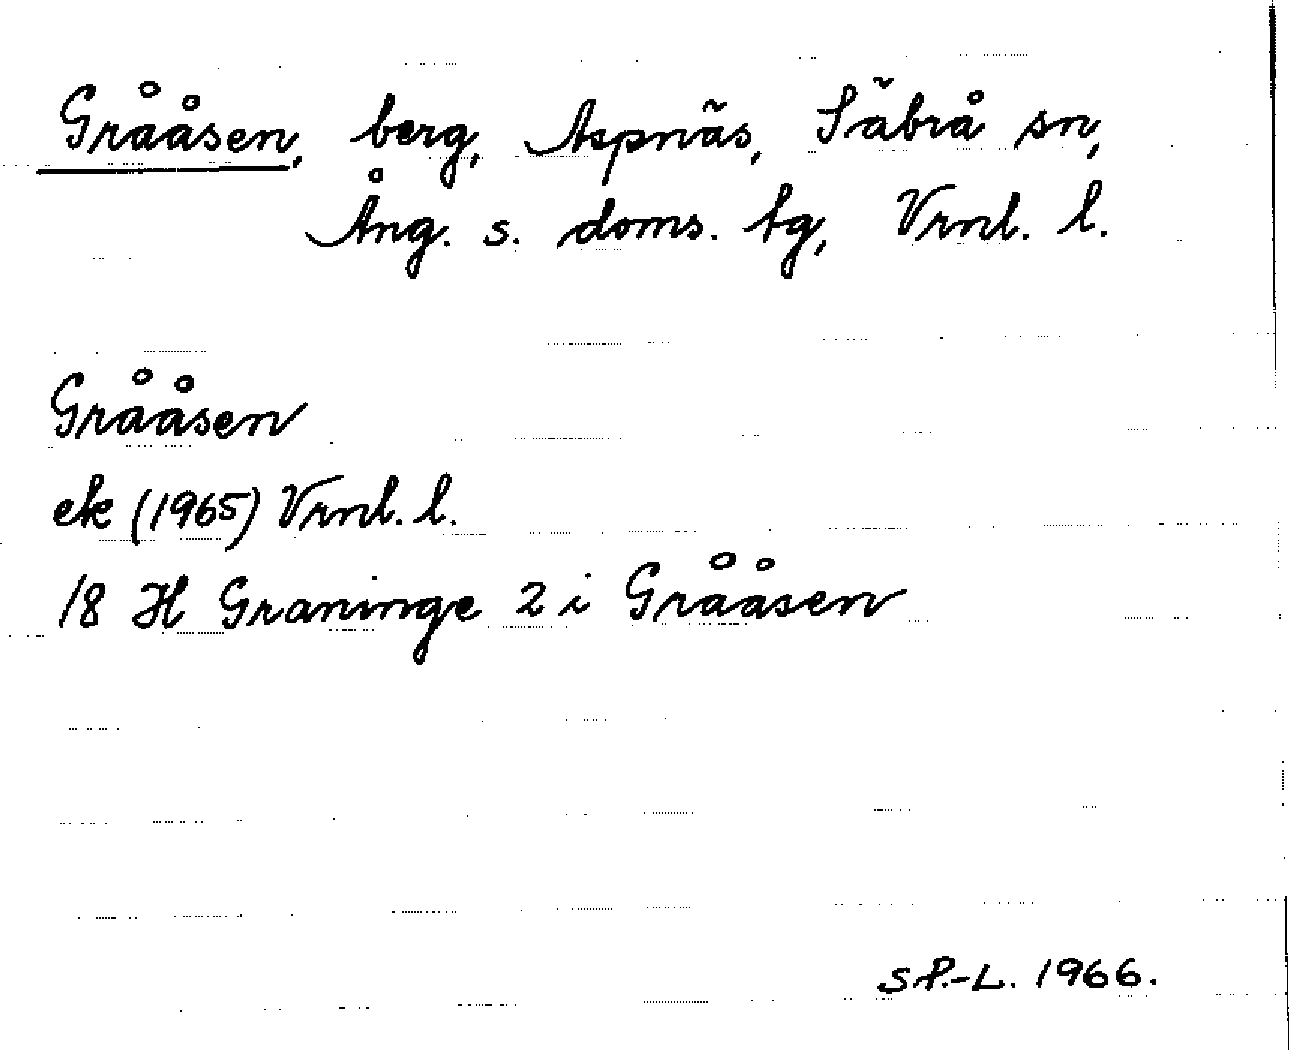 Grååsen, berg, Aspnäs, Säbrå sn,
Ång. s. doms. tg, Vrnl. l.
Grååsen
ek (1965) Vrnl. l.
18 H Graninge 2 i Grååsen
S P.-L. 1966.